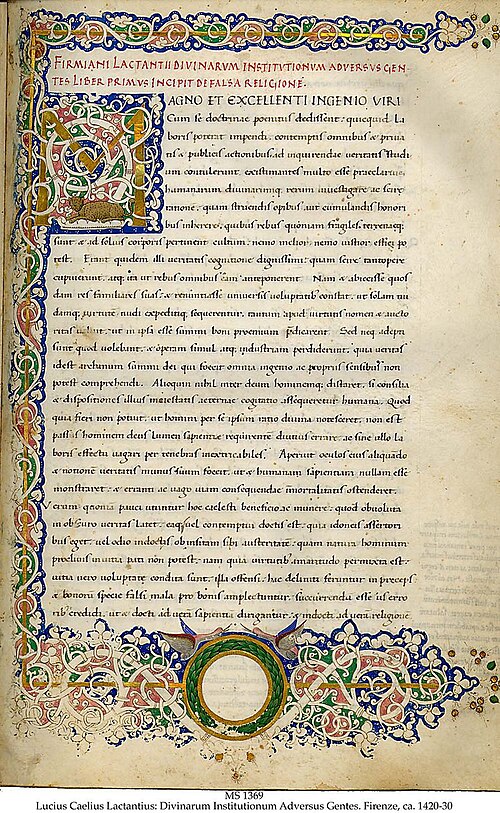 FIRMIANI LACTANTII DIVINARVM INSTITVTIONVM ADVERSVS GEN
TES LIBER PRIMVS INCIPIT DE FALSA RELIGIONE.
MAGNO ET EXCELLENTI INGENIO VIRI
Cum se doctrinae poenitus dedissent: quicquid La
boris poterat impendi, contemptis omnibus & priua
tis & publicis actionibus ad inquirendae ueritatis studi
um contulerunt, existimantes multo esse praeclarius
humanarum diuinarumq; rerum inuestigare ac scire
rationem, quam struendis opibus aut cumulandis honori
bus inherere, quibus rebus quoniam fragiles terrenaeq;
sunt & ad solius corporis pertinent cultum, nemo melior, nemo iustior effici po
test. Erant quidem illi ueritatis cognitione dignissimi: quam scire tantopere
cupiuerunt, atq; ita ut rebus omnibus eam anteponerent. Nam & abiecisse quos
dam res familiares suas: & renuntiasse uniuersis uoluptatibus constat, ut solam nu
damq; uirtutem nudi expeditiq; sequerentur, tantum apud eos uirtutis nomen & aucto
ritas ualuit, ut in ipsa esse summi boni praemium praedicarent. Sed neq; adepti
sunt quod uolebant, & operam simul atq; industriam perdiderunt, quia ueritas
idest archanum summi dei qui fecit omnia ingenio ac propriis sensibus non
potest comprehendi. Alioquin nihil inter deum hominemq; distaret, si consilia
& dispositiones illius maiestatis aeternae cogitatio assequeretur humana. Quod
quia fieri non potuit, ut homini per se ipsum ratio diuina notesceret, non est
passus hominem deus lumen sapientiae requirentem diutius errare, ac sine ullo la
boris effectu uagari per tenebras inextricabiles. Aperuit oculos eius aliquando
& notionem ueritatis munus suum fecit, ut & humanam sapientiam nullam esse
monstraret, & erranti ac uago uiam consequendae immortalitatis ostenderet.
Verum quoniam pauci utuntur hoc caelesti beneficio ac munere, quod obuoluta
in obscuro ueritas latet, eaq; uel contemptui doctis est, quia idoneis assertori
bus eget, uel odio indoctis ob insitam sibi austeritatem, quam natura hominum
procliuis in uitia pati non potest, nam quia uirtutibus amaritudo permixta est,
uitia uero uoluptate condita sunt, illa offensi, hac deliniti feruntur in praeceps
& bonorum specie falsi mala pro bonis amplectuntur, succurrendum esse his erro
ribus credidi, ut & docti ad ueram sapientiam dirigantur & indocti ad ueram religionem.
MS 1369
Lucius Caelius Lactantius: Divinarum Institutionum Adversus Gentes. Firenze, ca. 1420-30